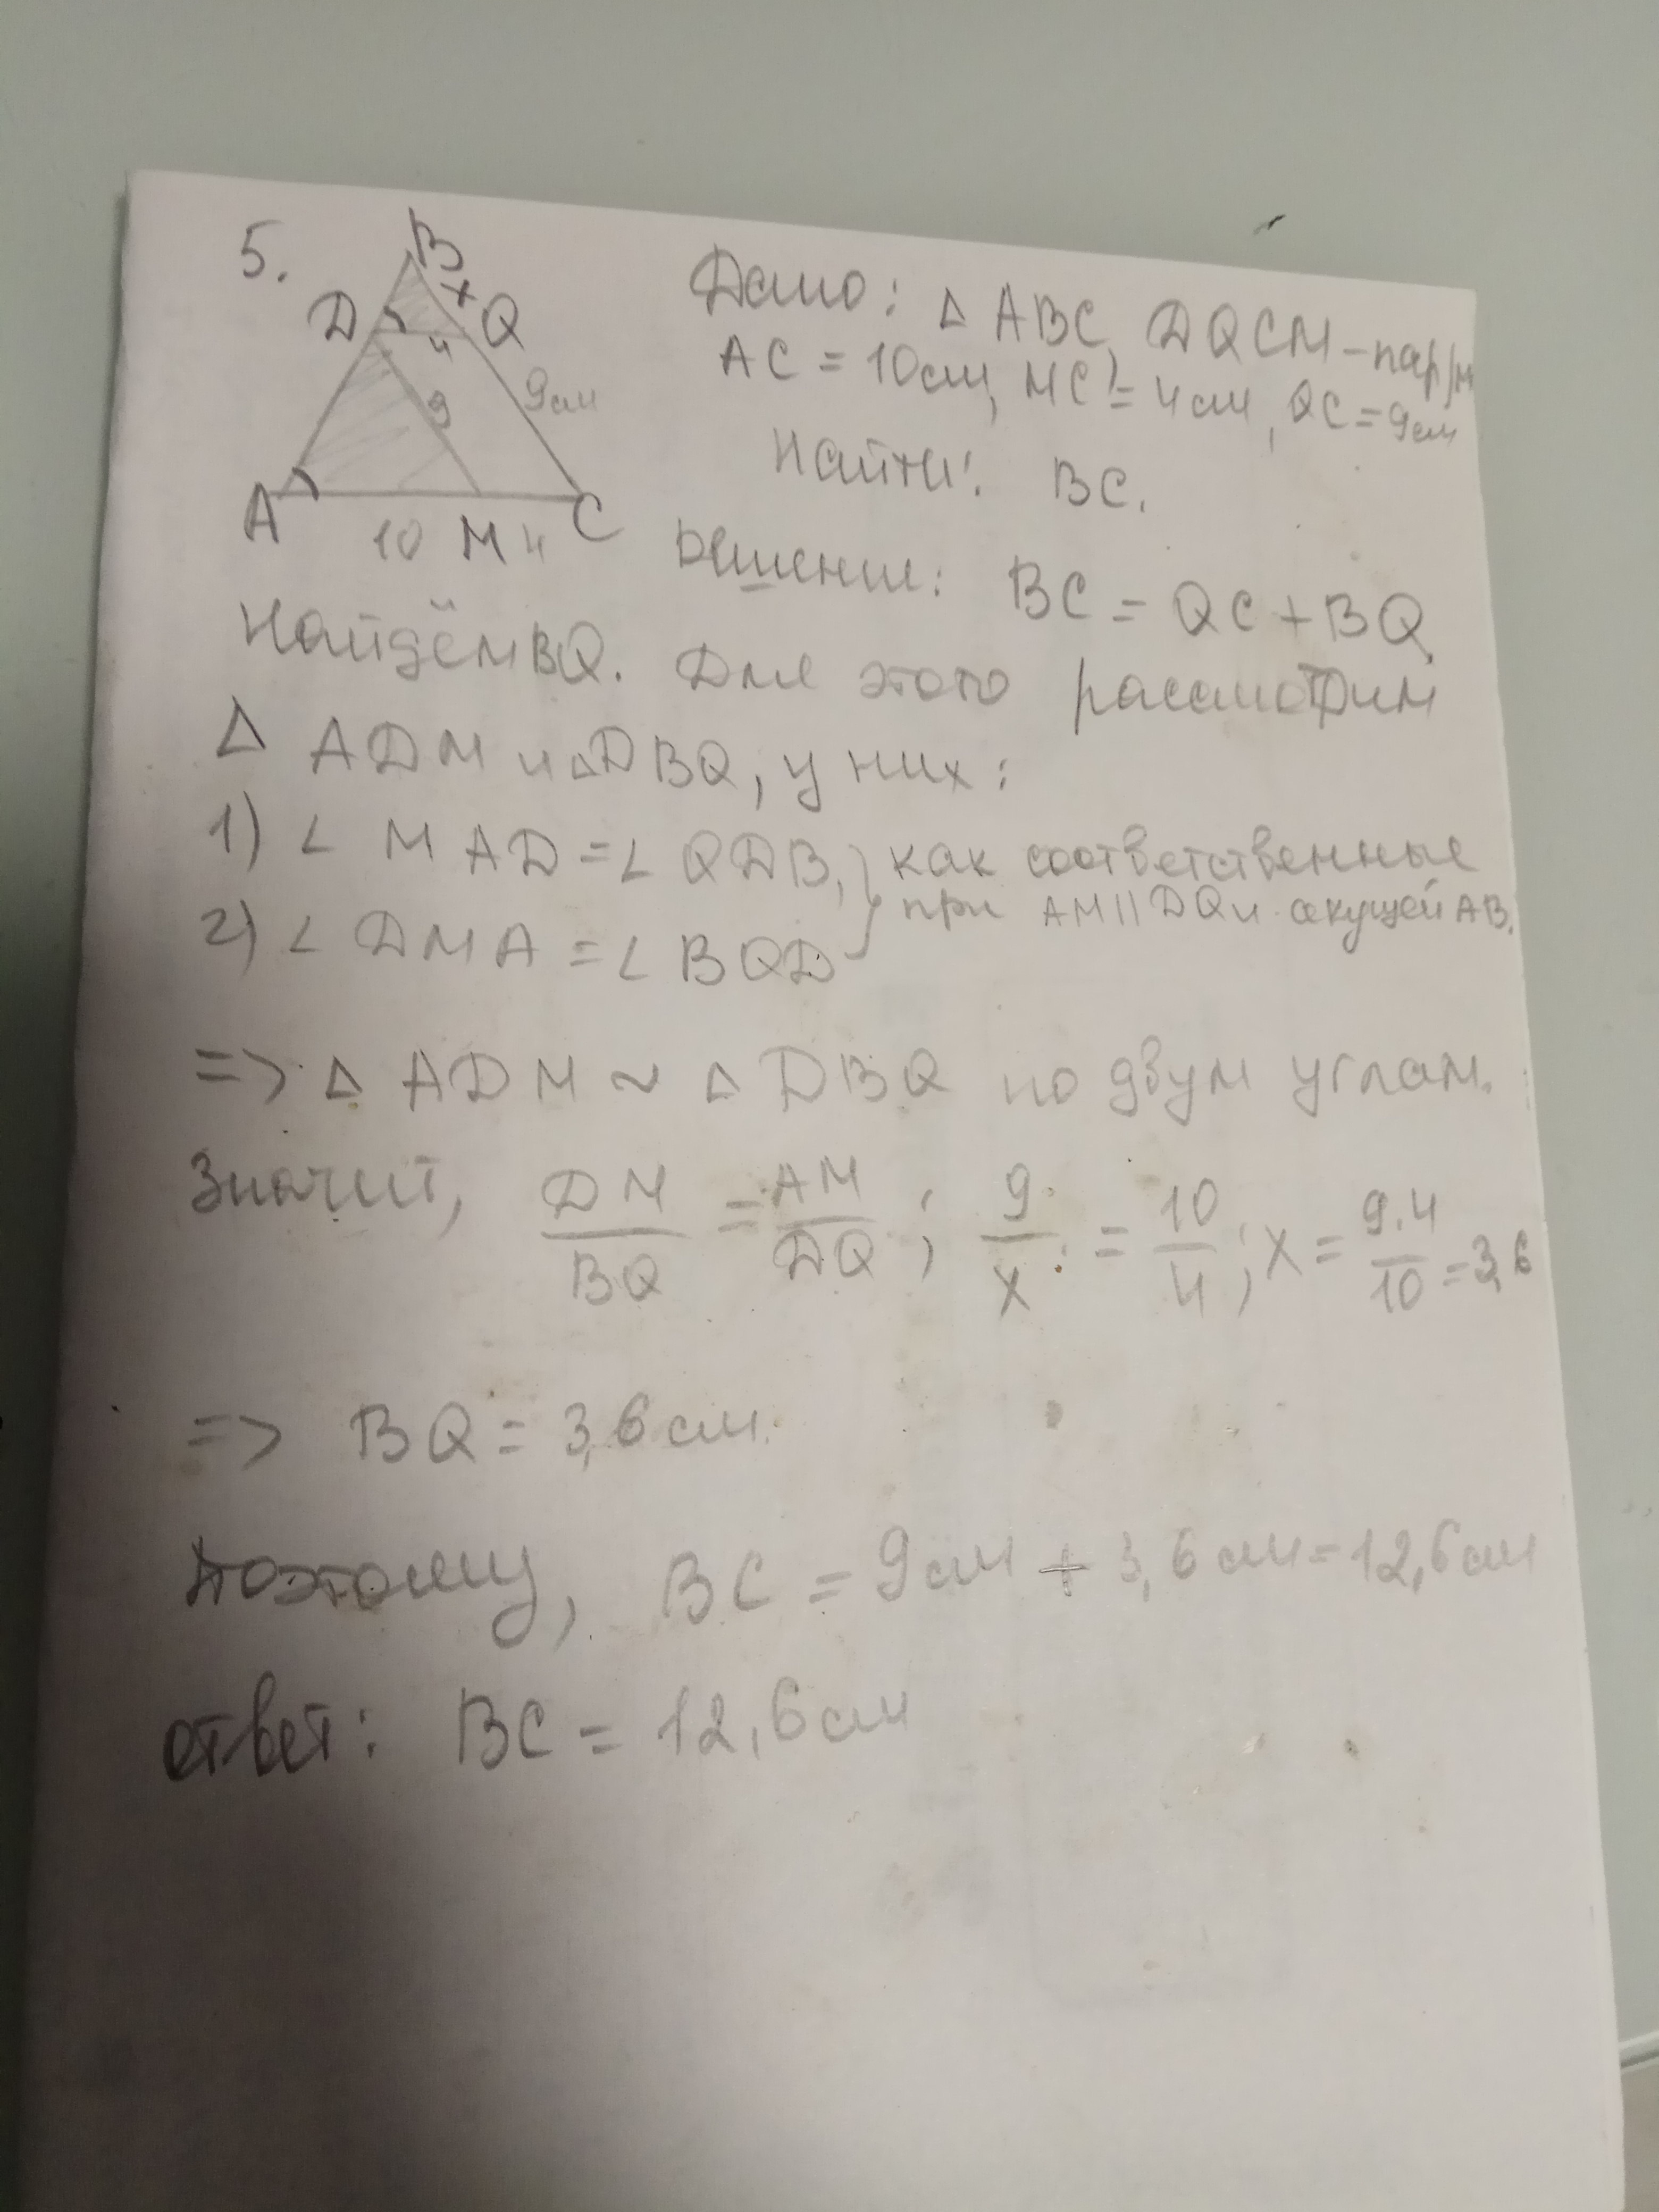 5.
B
x
D
Q
4
9
9см
A
10
M
4
C
Дано: △ ABC, DQCM – пар/м
AC = 10см, MC = 4см, QC = 9см
Найти: BC.
Решение: BC = QC + BQ
Найдём BQ. Для этого рассмотрим
△ ADM и △DBQ, у них:
1) ∠ MAD = ∠ QDB, } как соответственные
2) ∠ DMA = ∠ BQD } при AM || DQ и секущей AB.
=> △ ADM ~ △ DBQ по двум углам.
Значит, DM/BQ = AM/DQ ; 9/x = 10/4 ; x = 9·4/10 = 3,6
=> BQ = 3,6 см.
Поэтому, BC = 9см + 3,6см = 12,6см
ответ: BC = 12,6см